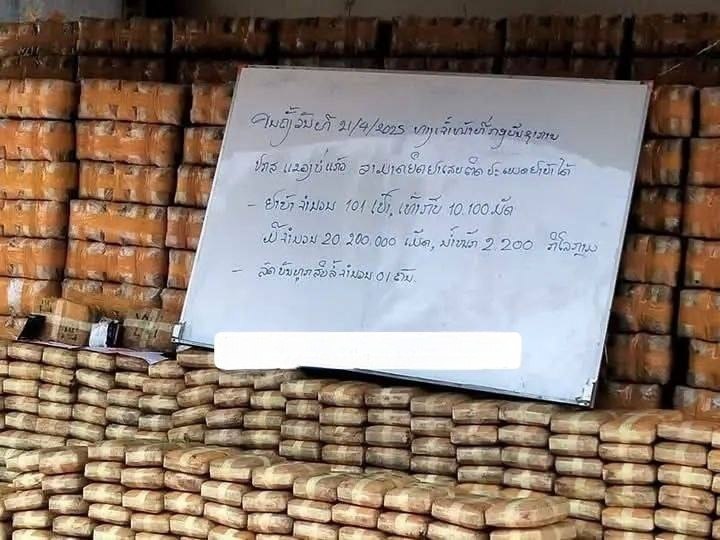 ຄັນຖິ້ງວັນທີ 21/4/2025 ທາງເຈົ້າໜ້າທີ່
ປກສ ແຂວງບໍ່ແກ້ວ ສາມາດຍຶດຢາເສບຕິດ ປະເພດຢາບ້າໄດ້
- ຢາບ້າ ຈຳນວນ 101 ເປົ໋າ, ເທົ່າກັບ 10.100 ມັດ
ມີຈຳນວນ 20.200.000 ເມັດ, ນ້ຳໜັກ 2.200 ກິໂລກຼາມ
- ລົດບັນທຸກສິບລໍ້ ຈຳນວນ 01 ຄັນ.